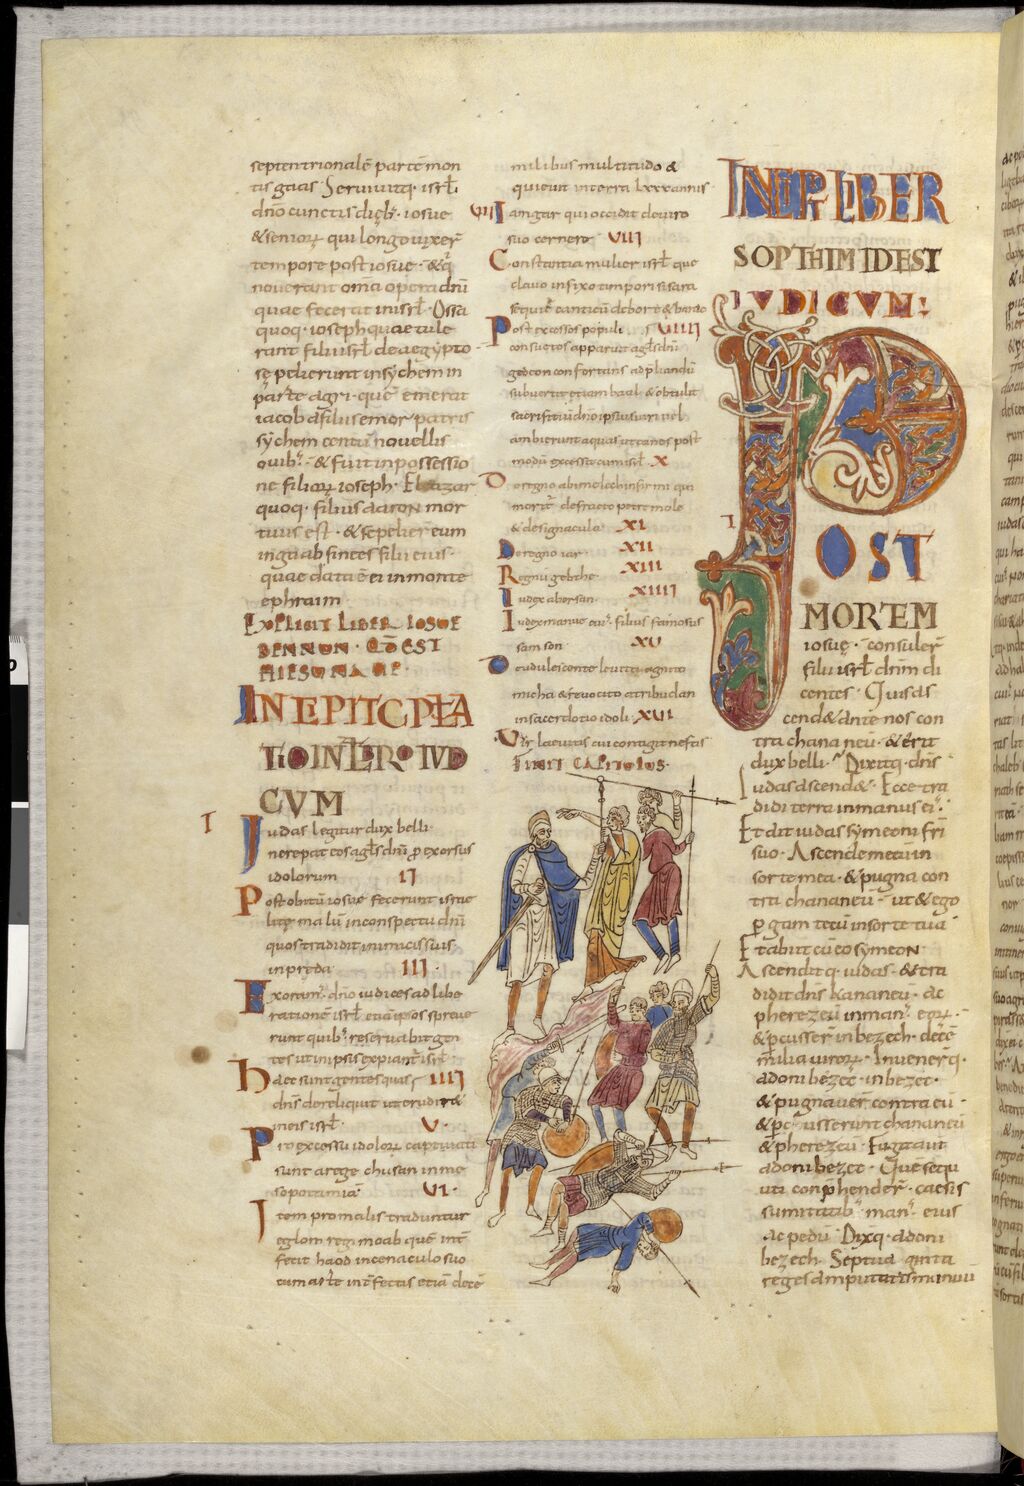 septentrionalē partē mon
tis gaas. Seruiuitq. isrl
dño cunctis dieb. iosue
& seniorū qui longo uixer̄
tempore post iosue. & q̄
nouerant om̄a opera dñi
quae fecerat in isrl. Ossa
quoq. ioseph quae tule
rant filii isrl de aegypto
sepelierunt in sychem in
parte agri. quē emerat
iacob a filiis emor patris
sychem centū nouellis
ouib. & fuit in possessio
ne filiorū ioseph. Eleazar
quoq. filius aaron mor
tuus est. & sepelier̄ eum
in gaab finees filii eius.
quae data ē ei in monte
ephraim
EXPLICIT LIBER IOSUE
BENNUN. QD EST
HIESUNAUE.
INCPIT CPLA
TIO IN LIBRO IVD
CVM
I Iudas legitur dux belli
Increpat eos agls dñi p exorsus
idolorum II
Post obitū iosue fecerunt israe
litę malū in conspectu dñi
quos tradidit inimicis suis
in preda III.
Exorant. dño iudices ad libe
rationē isrl etiā ipsos spreue
runt quib. reseruabit gen
tes ut in ipsis expiant isrl
Haec sunt gentes quas IIII
dñs dereliquit ut erudir&
in eis isrl V.
Pro excessu idolorū captiuati
sunt a rege chusan in me
sopotamiā VI.
Item pro malis traduntur
eglom regi moab quē int
fecit haod in cenaculo suo
cum arte int̄fectis etiā decē
milibus multitudo &
quieuit in terra lxxx annis
VII Samgar qui occidit de uiro
suo cernere VIII
Constantia mulier isrl que
clauo infixo tempori sisara
sequit̄ canticū debore & barac
Post excessos populi VIIII
consuetos apparuit agls dñi
gedeon confortans ad pliandū
subuertit etiam baal & obtulit
sacrificiū dño ipsius uir uel
ambierunt aquas ut canes post
modū excessit cum isrl X
De regno abimelech infirmi qui
morit̄ defracto petre mole
& designacula XI
De regno iar XII
Regnū gebthe. XIII
Iudex abessan XIIII
Iudex manue cui. filius famosus
samson XV
De idulei conte leuita agnito
micha & reuocito atribu dan
in sacerdotio idoli. XVI
Vir laeuitas cui contigit nefas
FINIT CAPITULOS.
INCIPIT LIBER
SOPTHIM ID EST
IUDICVM:
I POST
MORTEM
iosuę. consuler̄
filii isrl dnm di
centes. Quis as
cend& ante nos con
tra chananeū. & erit
dux belli. Dixitq. dñs
Iudas ascend&. Ecce tra
didi terra in manus ei.
Et ait iudas symeoni fri
suo. Ascende mecū in
sorte mea. & pugna con
tra chananeū. ut & ego
pgam tecū in sorte tua
Et abiit cū eo symeon.
Ascenditq. iudas. & tra
didit dñs kananeū. ac
pherezeū in man. eorū.
& pcusser̄ in bezech. decē
milia uirorū. Inuenerq.
adonibezec. in bezec.
& pugnauer̄ contra eū.
& pcusserunt chananeū
& pherezeū. Fugit aut̄
adonibezec. Quē secu
ti conphender̄. caesis
summitatib. man. eius
ac pedū. Dixq. adoni
bezech. Septuaginta
reges amputatis manuū